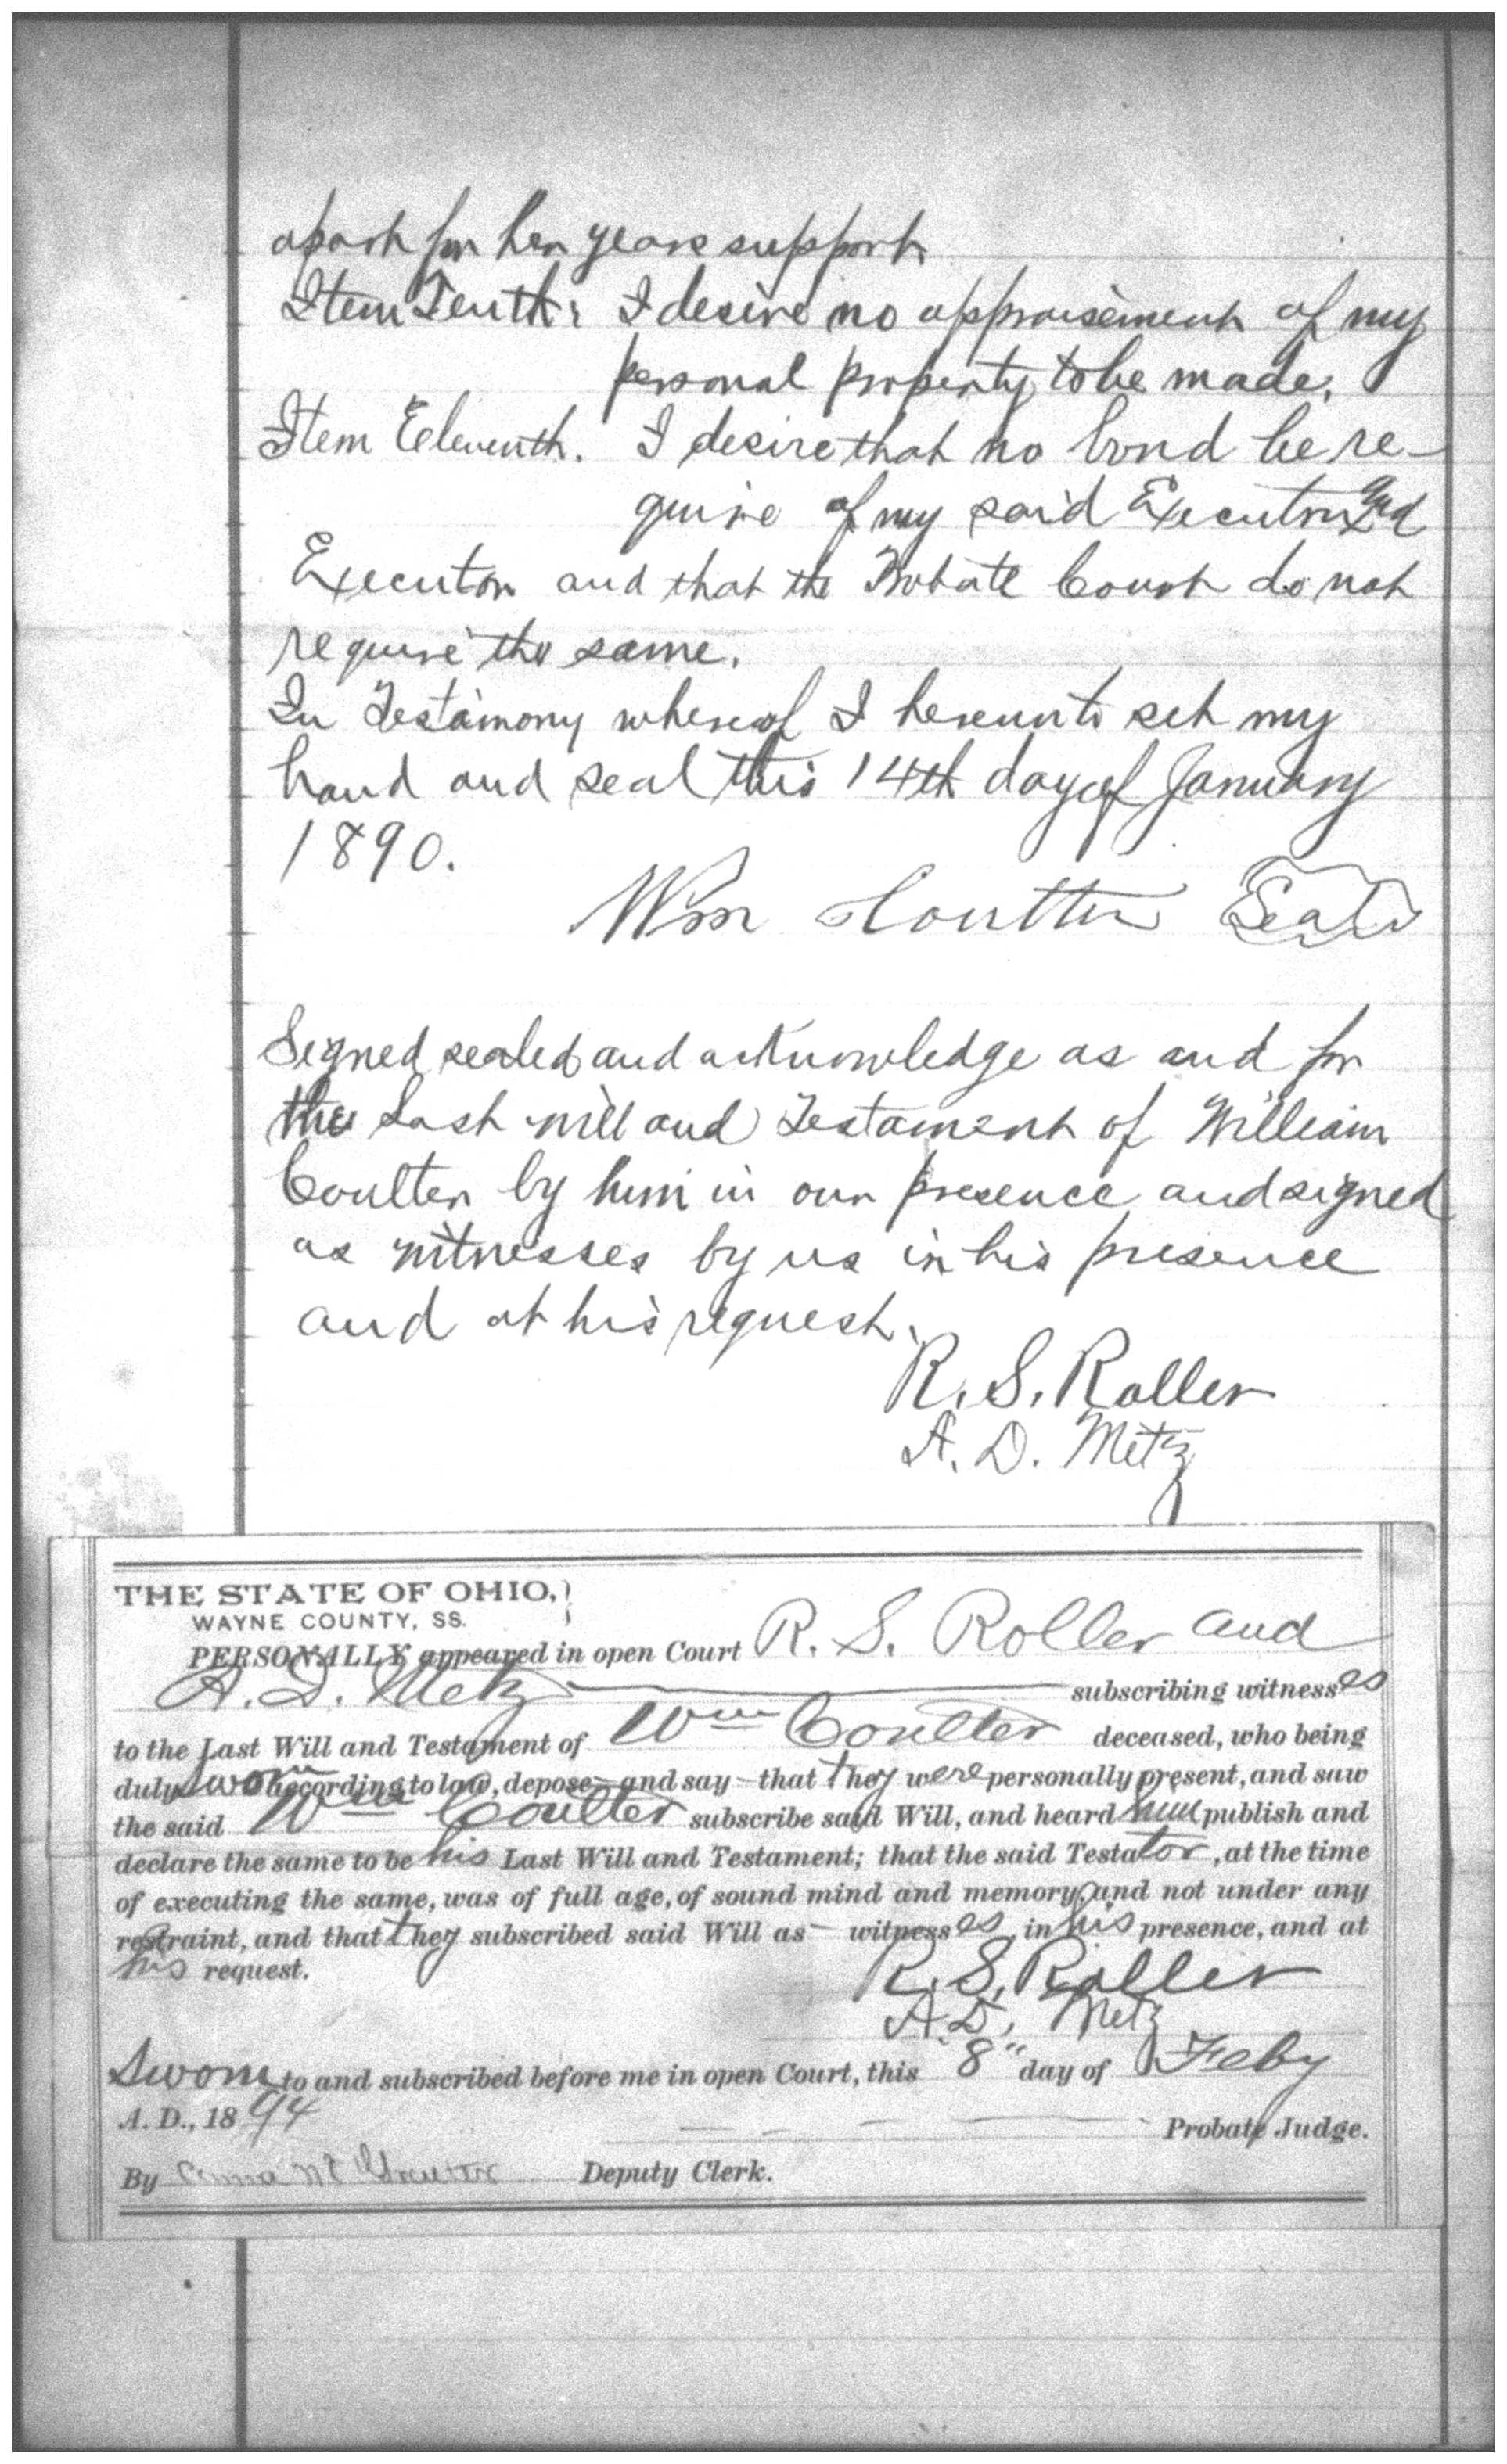 apart for her years support
Item Tenth: I desire no appraisement of my
personal property to be made.
Item Eeleventh. I desire that no bond be re-
quire of my said Executrix and
Executor and that the Probate Court do not
require the same.
In Testamony whereof I hereunto set my
hand and seal this 14th day of January
1890.
Wm Coulter Seal
Signed sealed and acknowledge as and for
the Last will and Testament of William
Coulter by him in our presence and signed
as witnesses by us in his presence
and at his request.
R. S. Roller
A. D. Metz
THE STATE OF OHIO,
WAYNE COUNTY, SS.
PERSONALLY appeared in open Court R. S. Roller and
A. D. Metz subscribing witnesses
to the Last Will and Testament of Wm Coulter deceased, who being
duly sworn according to law, depose and say that they were personally present, and saw
the said Wm Coulter subscribe said Will, and heard him publish and
declare the same to be his Last Will and Testament; that the said Testator, at the time
of executing the same, was of full age, of sound mind and memory, and not under any
restraint, and that they subscribed said Will as witnesses, in his presence, and at
his request.
R. S. Roller
A. D. Metz
Sworn to and subscribed before me in open Court, this "8" day of Feby
A. D., 1894
Probate Judge.
By Deputy Clerk.